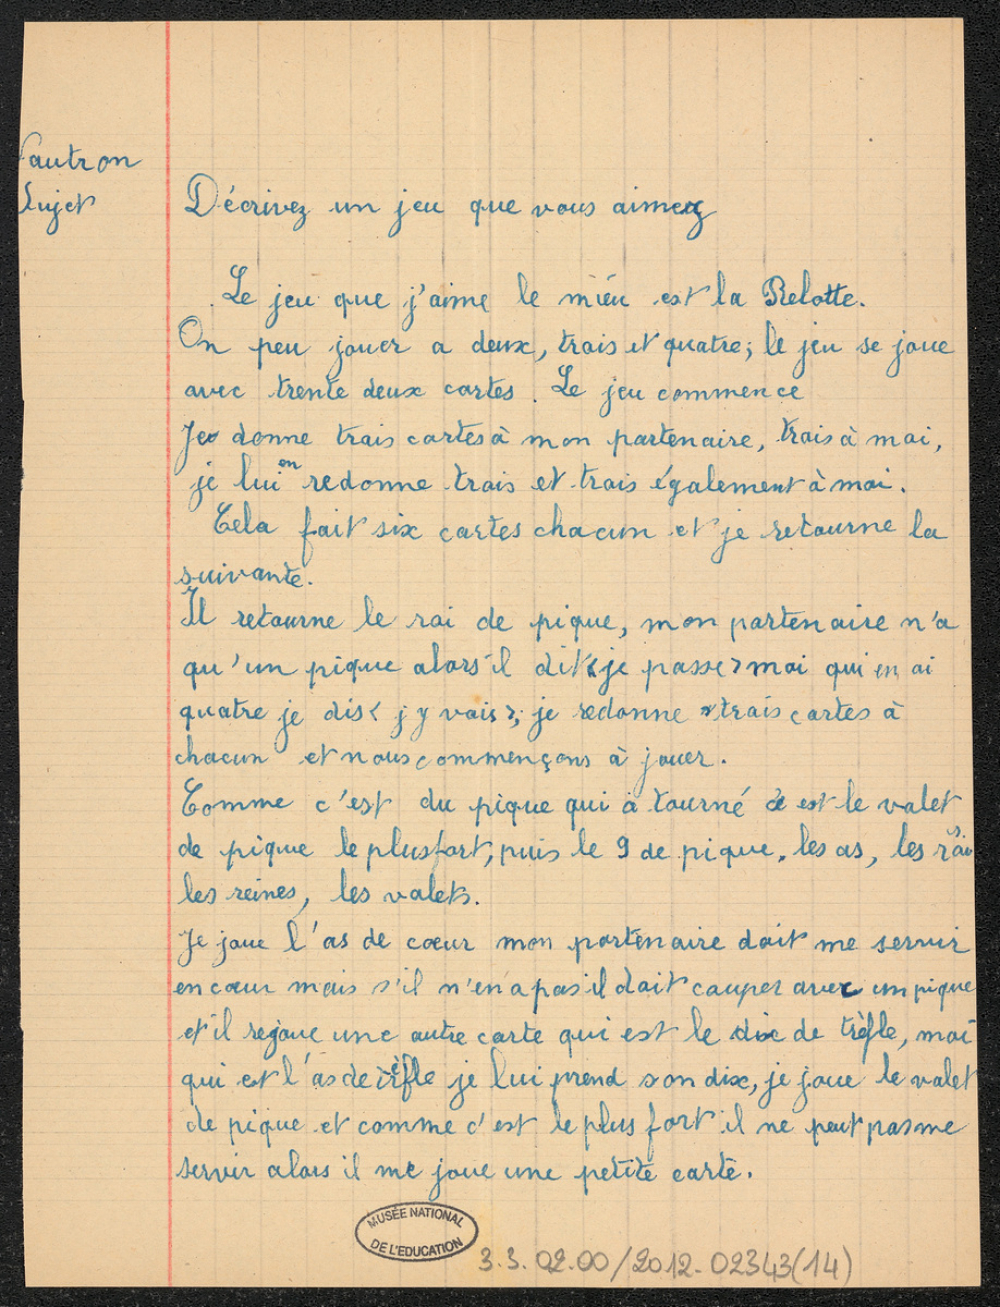 Fautron
Sujet
Décrivez un jeu que vous aimez
Le jeu que j'aime le miéu est la Belotte.
On peu jouer a deux, trois et quatre; le jeu se joue
avec trente deux cartes. Le jeu commence
Je donne trois cartes à mon partenaire, trois à moi,
je lui en redonne trois et trois également à moi.
Cela fait six cartes chacun et je retourne la
suivante.
Il retourne le roi de pique, mon partenaire n'a
qu'un pique alors il dit <je passe> moi qui en ai
quatre je dis < j'y vais >; je redonne trois cartes à
chacun et nous commençons à jouer.
Comme c'est du pique qui à tourné ce est le valet
de pique le plus fort, puis le 9 de pique, les as, les rois
les reines, les valets.
Je joue l'as de cœur mon partenaire doit me servir
en cœur mais s'il n'en a pas il doit couper avec un pique
et il rejoue une autre carte qui est le dix de trèfle, moi
qui est l'as de trèfle je lui prend son dix, je joue le valet
de pique et comme c'est le plus fort il ne peut pas me
servir alors il me joue une petite carte.
MUSÉE NATIONAL
DE L'EDUCATION
3.3.02.00/2012-02343(14)